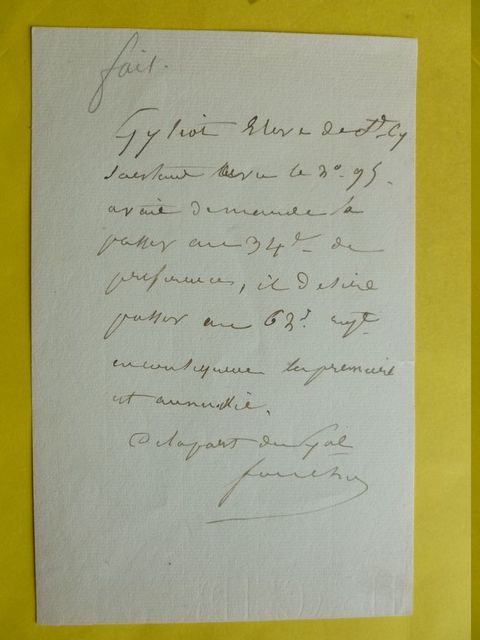 fait.
Gyliot Eleve de St Cy
sortant le no. 95.
avait demandé à
passer au 34e de
préférence, il désire
passer au 63e regt
en conséquence la première
est annulée.
De la part du Gal